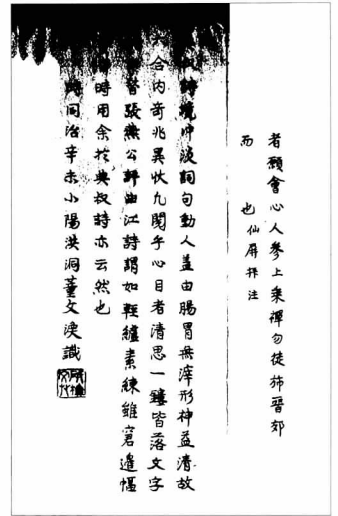 者願會心人參上乘禪勿徒
而 也 仙屏拜注
沖淡詞句動人蓋由腸胃無滓形神益清故
合內奇兆異狀九閡乎心目者清思一鑱皆落文字
昔張燕公評曲江詩謂如輕縑素練雖窘邊幅
時用余於叔詩亦云然也
同治辛未小陽洪洞董文渙識